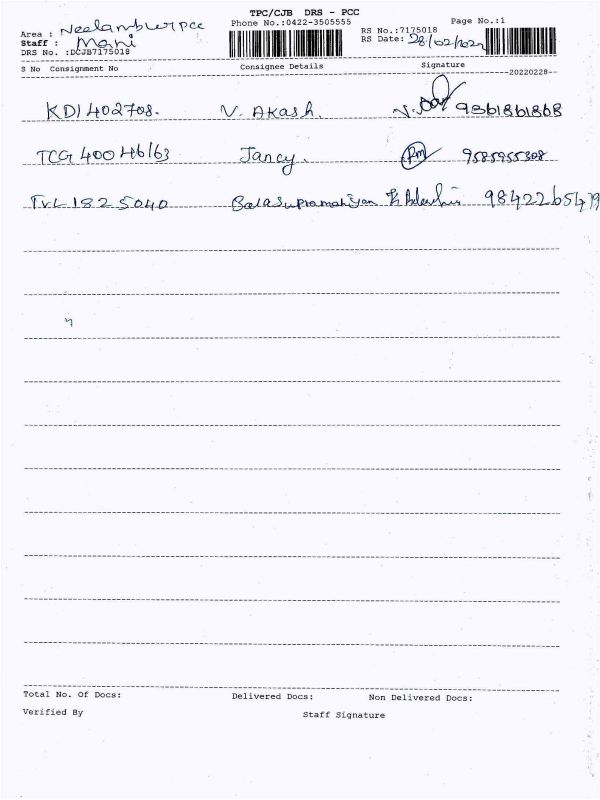 TPC/CJB DRS - PCC
Phone No.:0422-3505555
Page No.:1
Area : Neelambur pcc
RS No.:7175018
Staff : Mani
RS Date: 28/02/2022
DRS No. :DCJB7175018
S No Consignment No Consignee Details Signature
20220228
KDI 402708. V. Akash. 9361861868
TCG 40046163 Jancy. 9585955308
TVL 1825040 Balasupramaniyan 9842265479
Total No. Of Docs: Delivered Docs: Non Delivered Docs:
Verified By Staff Signature